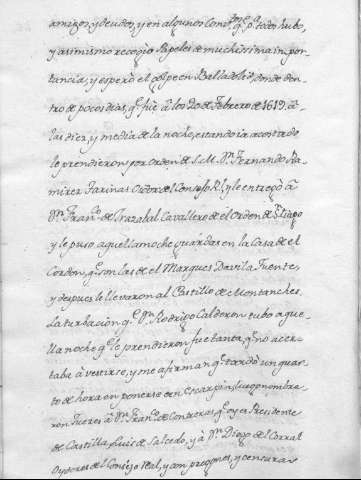 amigos, y deudos, y en algunos Conv.tos q.e p.a todo hubo,
y asimismo recogio Papeles de muchissima inpor-
tancia, y esperò el golpe en Balladolid, donde den-
tro de pocos dias, q.e fue à los 20 de Febrero de 1619, à
las diez, y media de la noche, estando ia acostado
le prendieron por orden de S. M. D.n Fernando Ra-
mirez Farinas Oidor del Consejo R.l y le entregò à
D.n Fran.co de Irazabal Cavallero de el Orden de S.tiago
y le puso aquella noche guardas en la Casa de el
Cordon, q.e son las de el Marques Davila Fuente,
y despues le llevaron al Castillo de Montanches.
La turbacion q.e D.n Rodrigo Calderon tubo aque-
lla noche q.e le prendieron fue tanta, q.e no acer-
taba à vestirse, y me afirman q.e tardò un quar-
to de hora en ponerse un Escarpin, luego nombra-
ron Jueces à D.n Fran.co de Contreras, q.e oy es Presidente
de Castilla, Luis de Salcedo, y à D.n Diego de el Corral
Oydores del Consejo Real, y con pregones, y censuras